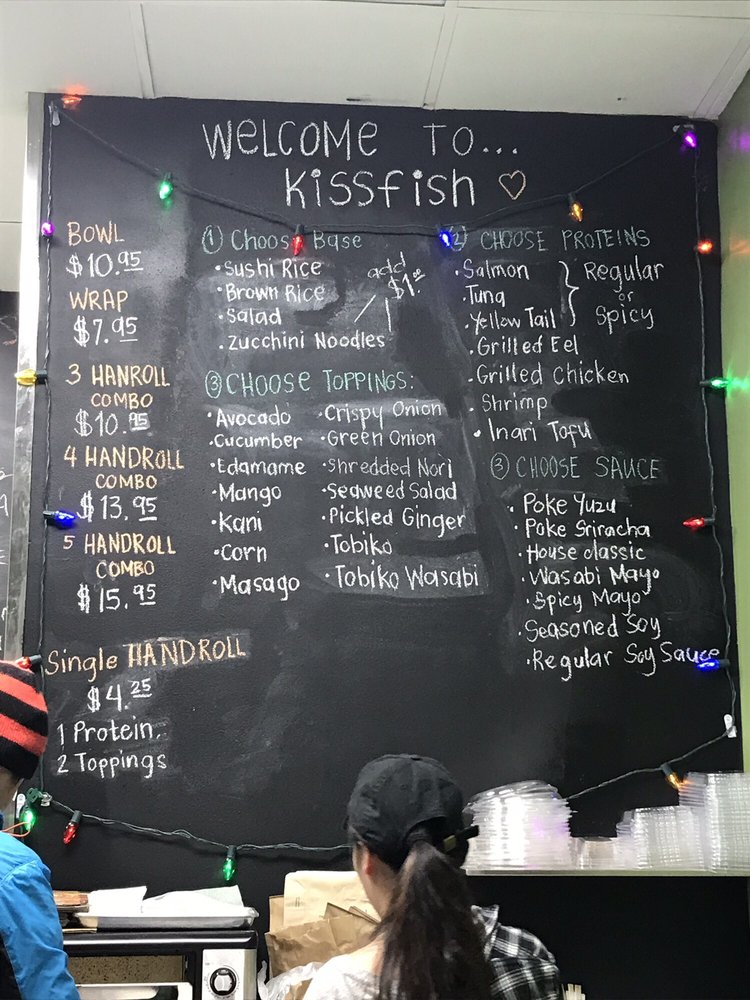 WELCOME TO...
KISSFISH
BOWL
$10.95
WRAP
$7.95
3 HANROLL
COMBO
$10.95
4 HANDROLL
COMBO
$13.95
5 HANDROLL
COMBO
$15.95
Single HANDROLL
$4.25
1 Protein,
2 Toppings
① Choose Base
• Sushi Rice
• Brown Rice
• Salad
• Zucchini Noodles
add
$1.00
③ CHOOSE TOPPINGS:
• Avocado
• Cucumber
• Edamame
• Mango
• Kani
• Corn
• Masago
• Crispy Onion
• Green Onion
• Shredded Nori
• Seaweed Salad
• Pickled Ginger
• Tobiko
• Tobiko Wasabi
② CHOOSE PROTEINS
• Salmon
• Tuna
• Yellow Tail
Regular
or
Spicy
• Grilled Eel
• Grilled Chicken
• Shrimp
• Inari Tofu
③ CHOOSE SAUCE
• Poke Yuzu
• Poke Sriracha
• House classic
• Wasabi Mayo
• Spicy Mayo
• Seasoned Soy
• Regular Soy Sauce